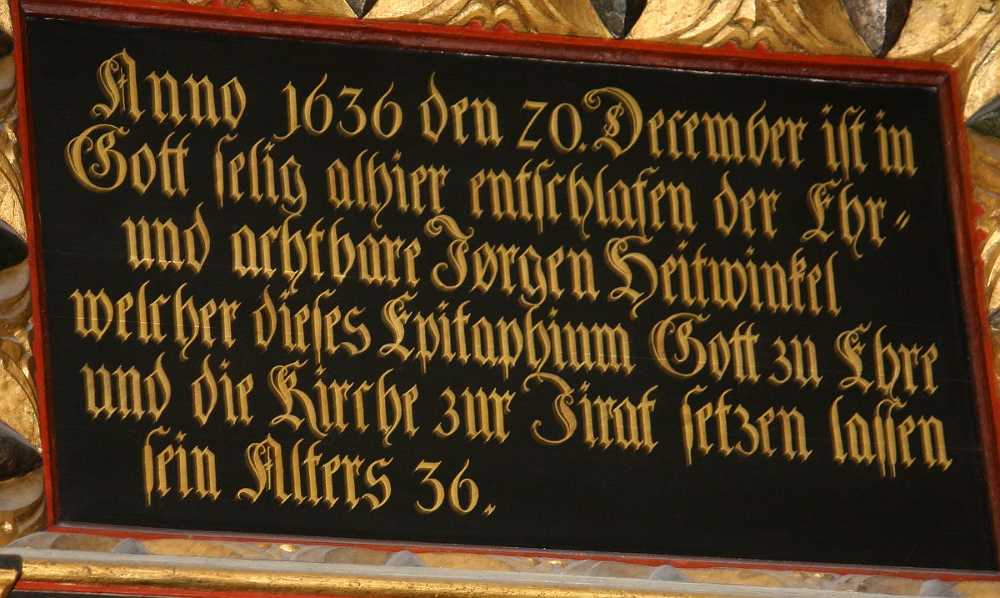 Anno 1636 den 20. December ist in
Gott selig alhier entschlafen der Ehr-
und achtbare Jørgen Heitwinkel
welcher dieses Epitaphium Gott zu Ehre
und die Kirche zur Jirat setzen lassen
sein Alters 36.